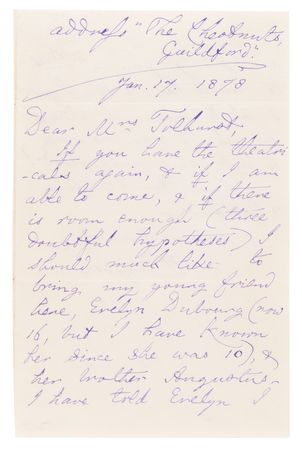 address "The Chestnuts,
Guildford".
Jan. 17. 1878
Dear Mrs Tolhurst,
If you have the theatri
-cals again, & if I am
able to come, & if there
is room enough (three
doubtful hypotheses) I
should much like to
bring my young friend
here, Evelyn Dubourg (now
16, but I have known
her since she was 10), &
her brother Augustus.
I have told Evelyn I